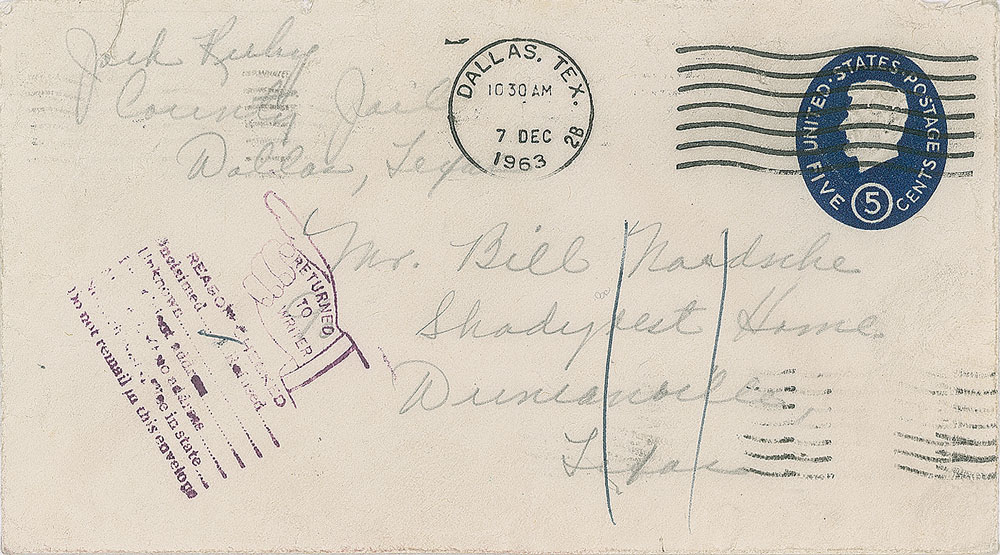 Jack Ruby
County Jail
Dallas, Texas
DALLAS, TEX.
10 30 AM
7 DEC
1963
2B
UNITED STATES POSTAGE
FIVE CENTS
5
Mr. Bill
Home
Texas
RETURNED
TO
WRITER
REASON CHECKED
Unclaimed Refused
Unknown
address
no address
office in state
Do not remail in this envelope